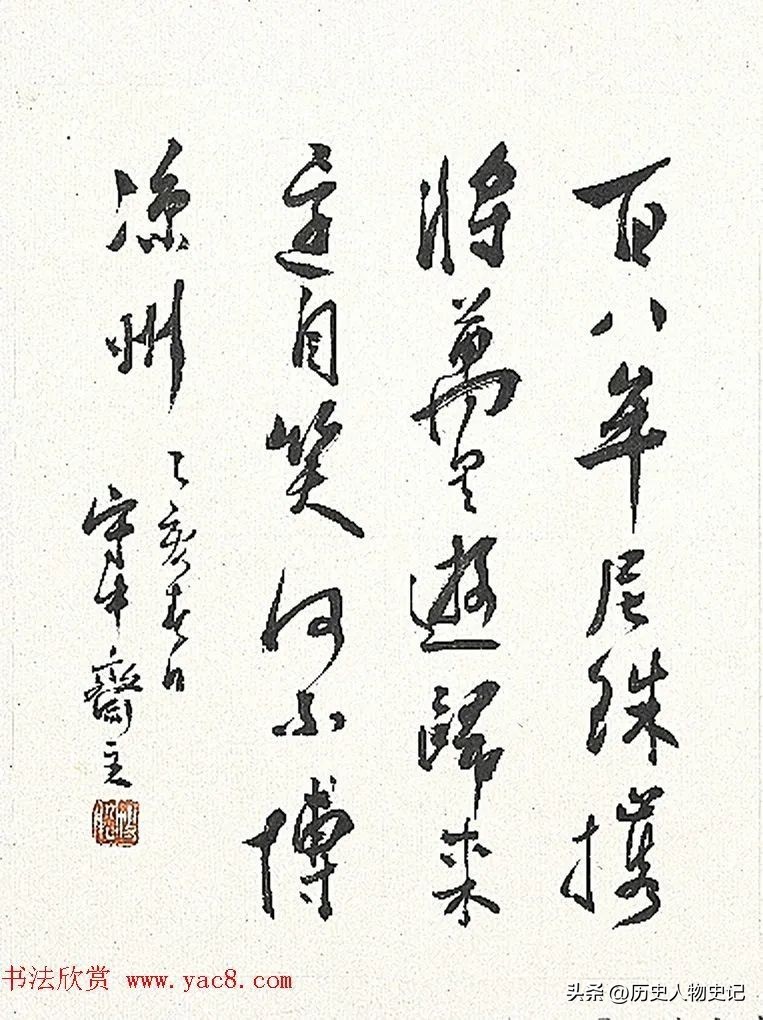 百八牟尼珠攜
將萬里遊歸来
還自笑何不博
涼州
乙亥春日
齋主
书法欣赏 www.yac8.com
头条 @历史人物史记